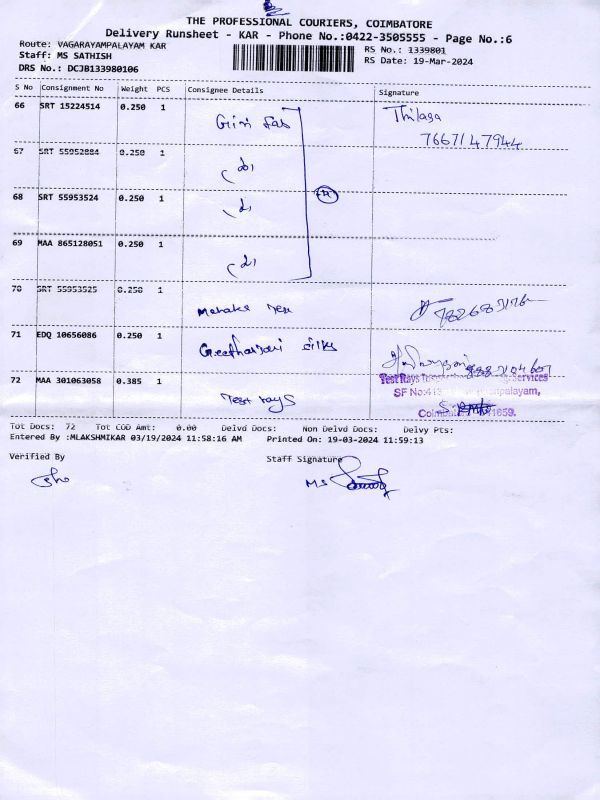 THE PROFESSIONAL COURIERS, COIMBATORE
Delivery Runsheet - KAR - Phone No.:0422-3505555 - Page No.:6
Route: VAGARAYAMPALAYAM KAR
RS No.: 1339801
Staff: MS SATHISH
RS Date: 19-Mar-2024
DRS No.: DCJB133980106
S No Consignment No Weight PCS Consignee Details Signature
66 SRT 15224514 0.250 1 Thilaga
7667147944
67 SRT 55952884 0.250 1
68 SRT 55953524 0.250 1
69 MAA 865128051 0.250 1
70 SRT 55953525 0.250 1
71 EDQ 10656086 0.250 1
72 MAA 301063058 0.385 1 Test rays
Test Rays Services
SF No:41 palayam,
Coimbat 1659.
Tot Docs: 72 Tot COD Amt: 0.00 Delvd Docs: Non Delvd Docs: Delvy Pts:
Entered By :MLAKSHMIKAR 03/19/2024 11:58:16 AM Printed On: 19-03-2024 11:59:13
Verified By Staff Signature
MS